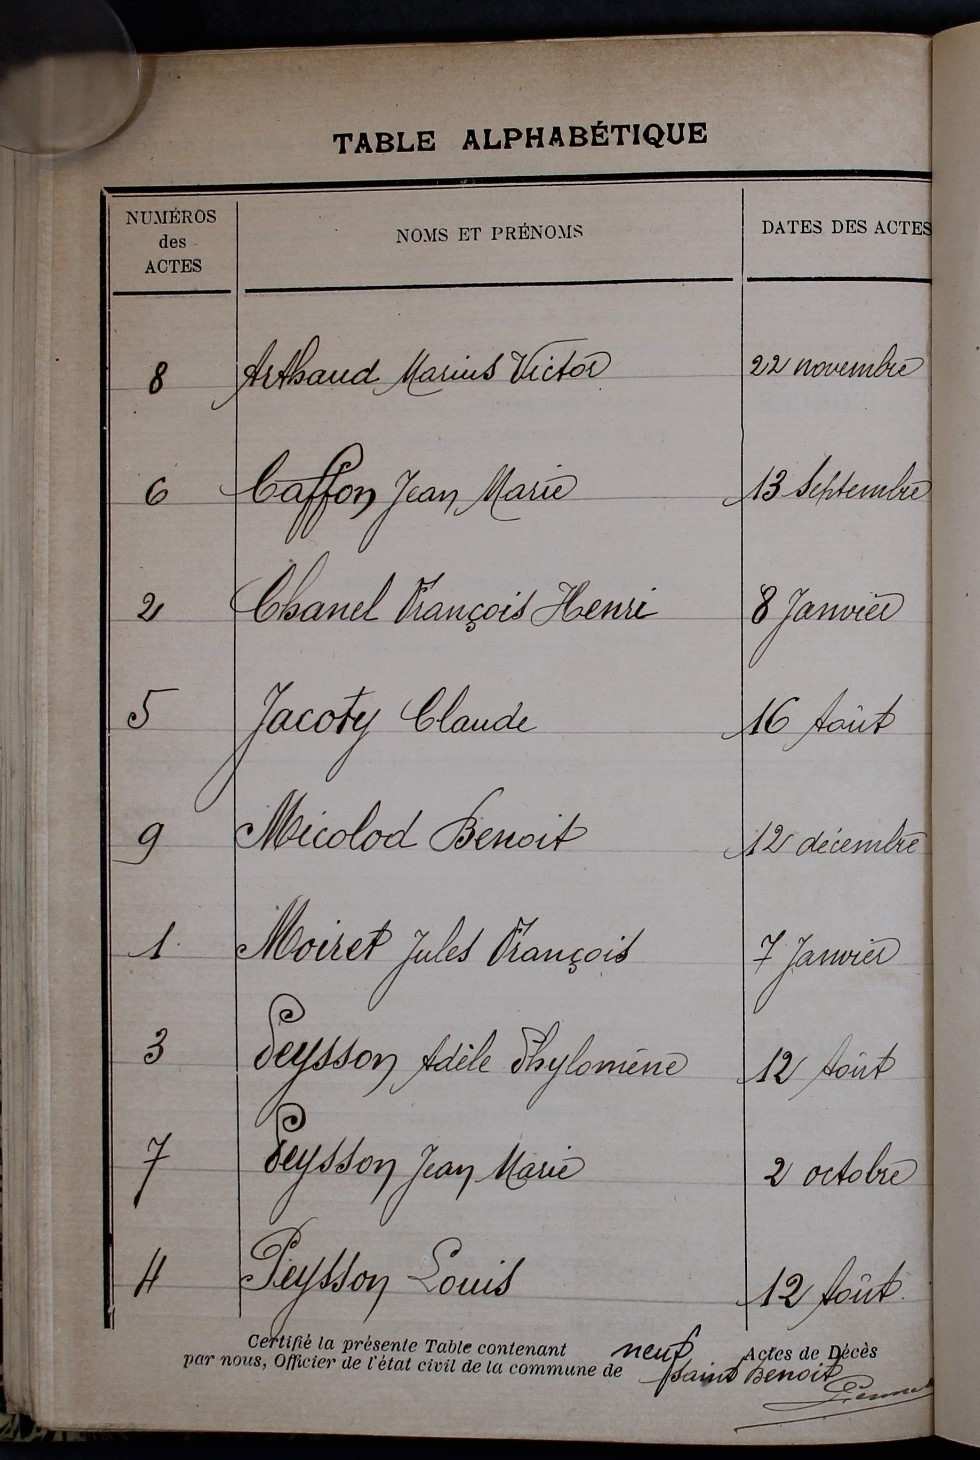 TABLE ALPHABÉTIQUE
NUMÉROS
des
ACTES
NOMS ET PRÉNOMS
DATES DES ACTES
8 Arthaud Marius Victor 22 novembre
6 Caffon Jean Marie 13 Septembre
2 Chanel François Henri 8 Janvier
5 Jacoty Claude 16 Août
9 Micolod Benoit 12 décembre
1 Moiret Jules François 7 Janvier
3 Peysson Adèle Phylomène 12 Août
7 Peysson Jean Marie 2 octobre
4 Peysson Louis 12 Août
Certifié la présente Table contenant neuf Actes de Décès
par nous, Officier de l'état civil de la commune de Saint Benoit